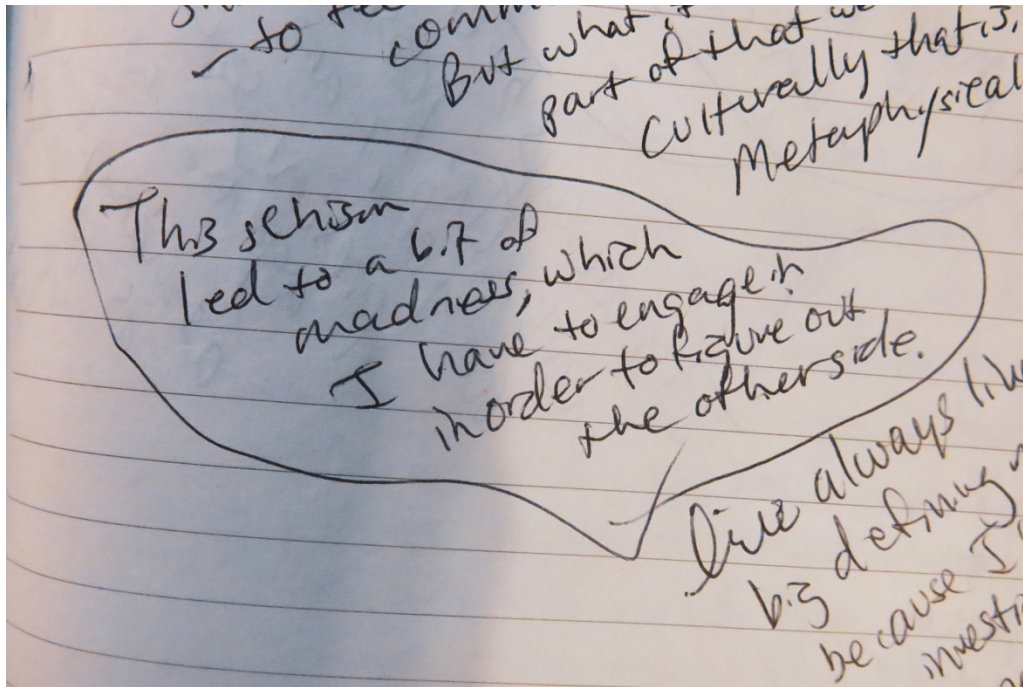 to
But what
part of that we
Culturally that is,
Metaphysical
This schism
led to a bit of
madness, which
I have to engage in
in order to figure out
the otherside.
always
big defining
because I